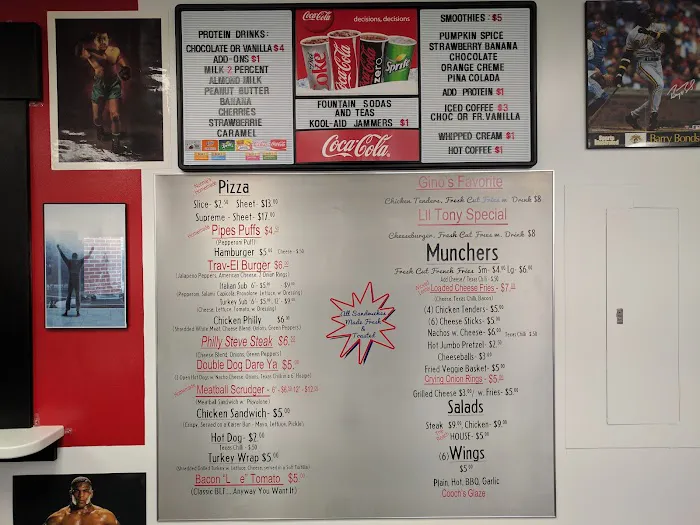 PROTEIN DRINKS:
CHOCOLATE OR VANILLA $4
ADD-ONS $1
MILK 2 PERCENT
ALMOND MILK
PEANUT BUTTER
BANANA
CHERRIES
STRAWBERRIE
CARAMEL
Coca-Cola
decisions, decisions.
Coke
Coca-Cola
zero
Sprite
FOUNTAIN SODAS
AND TEAS
KOOL-AID JAMMERS $1
Coca-Cola
SMOOTHIES: $5
PUMPKIN SPICE
STRAWBERRY BANANA
CHOCOLATE
ORANGE CREME
PINA COLADA
ADD PROTEIN $1
ICED COFFEE $3
CHOC OR FR.VANILLA
WHIPPED CREAM $1
HOT COFFEE $1
Sports Illustrated
Barry Bonds
Homemade Pizza
Slice- $2.50 Sheet- $13.00
Supreme - Sheet- $17.00
Homemade Pipes Puffs $4
(Pepperoni Puff)
Hamburger $5 Cheese - $.50
Trav-El Burger $6
(Jalapeno Peppers, American Cheese, Onion Rings)
Italian Sub 6"- $5 $9
(Pepperoni, Salami, Capicola, Provolone, Lettuce, w. Dressing)
Turkey Sub 6"- $5 12"- $9
(Cheese, Lettuce, Tomato, w. Dressing)
Chicken Philly $6
(Shredded White Meat, Cheese Blend, Onions, Green Peppers)
Philly Steve Steak $6
(Cheese Blend, Onions, Green Peppers)
Double Dog Dare Ya $5
Homemade Meatball Scrudger - 6"- $6 12"- $12
(Meatball Sandwich w. Provolone)
Chicken Sandwich- $5.00
(Crispy, Served on a Kaiser Bun - Mayo, Lettuce, Pickle)
Hot Dog- $2.00
Texas Chili - $.50
Turkey Wrap $5.00
Bacon "L e" Tomato $5
(Classic BLT.....Anyway You Want It)
All Sandwiches
Made Fresh
&
Toasted
Gino's Favorite
Chicken Tenders, Fresh Cut Fries w. Drink $8
Lil Tony Special
Cheeseburger, Fresh Cut Fries w. Drink $8
Munchers
Fresh Cut French Fries Sm- $4.00 Lg- $6.00
Add Cheese / Texas Chili - $.50
Loaded Cheese Fries- $7
(Cheese, Texas Chili, Bacon)
(4) Chicken Tenders- $5.00
(6) Cheese Sticks- $5.00
Nachos w. Cheese- $6.00 Texas Chili $.50
Hot Jumbo Pretzel- $2
Cheeseballs- $3.00
Fried Veggie Basket- $5.00
Crying Onion Rings - $5
Grilled Cheese $3.00/ w. Fries- $5.00
Salads
Steak $9.00, Chicken- $9.00
HOUSE- $5.00
(6) Wings
$5.00
Plain, Hot, BBQ, Garlic
Cooch's Glaze